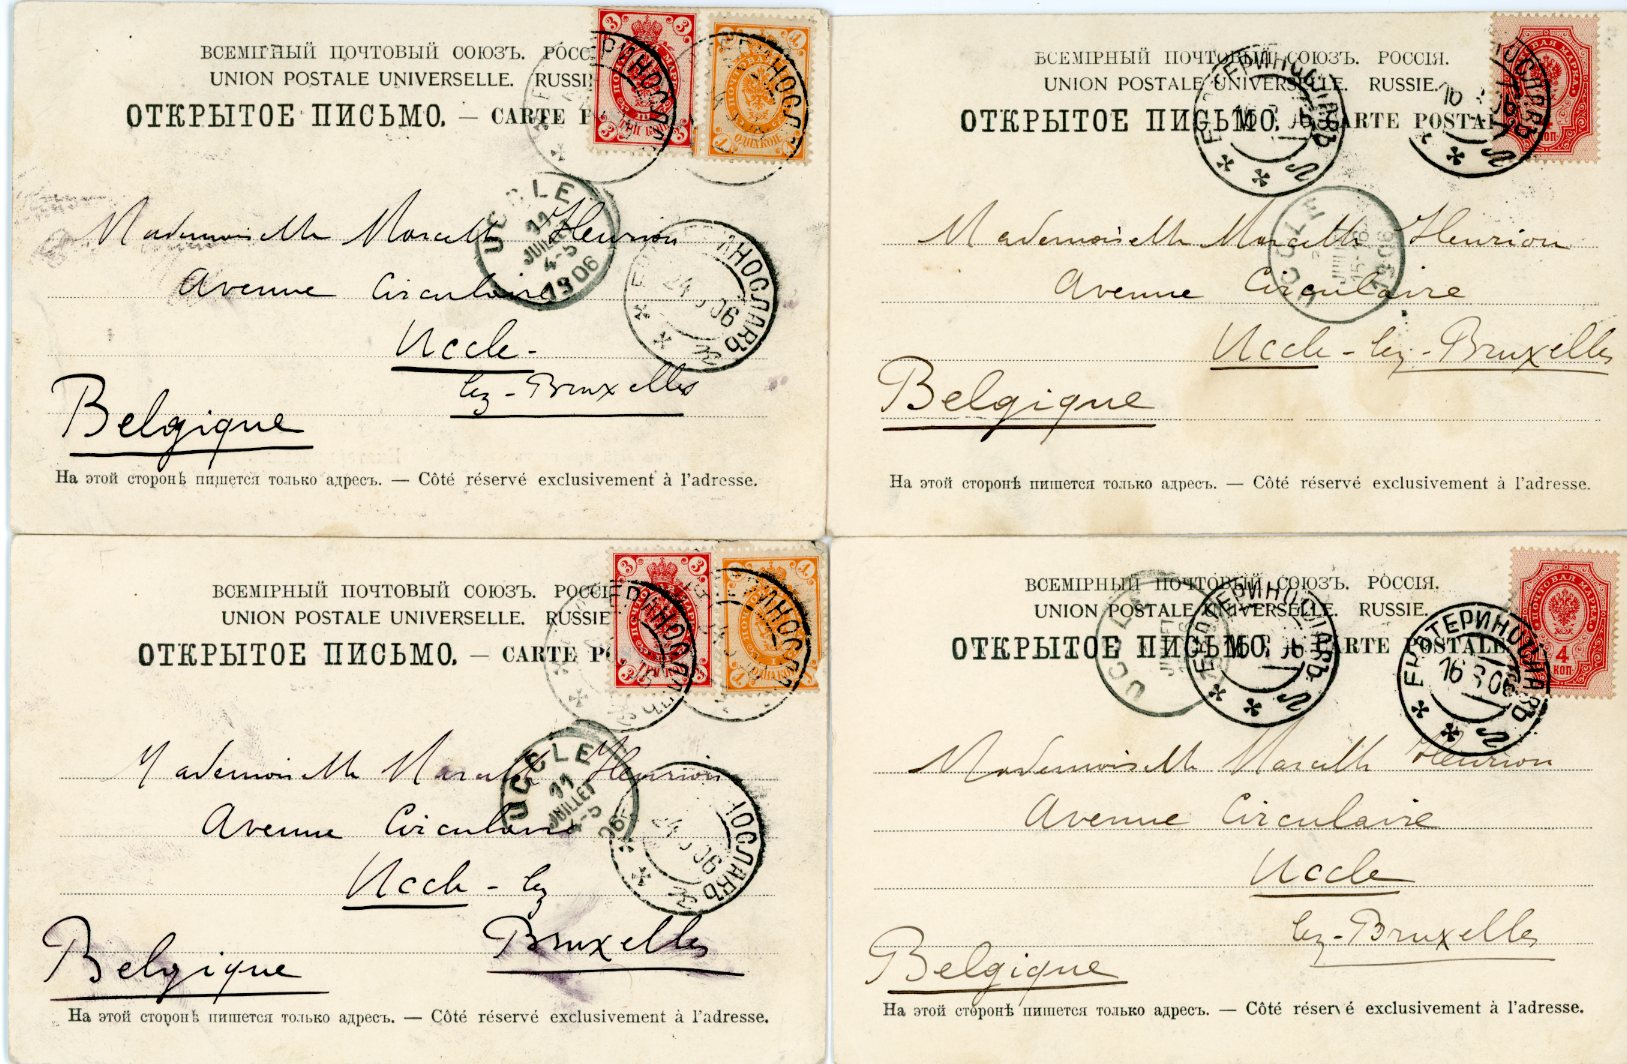 ВСЕМІРНЫЙ ПОЧТОВЫЙ СОЮЗЪ. РОССІ
UNION POSTALE UNIVERSELLE. RUSSIE
ОТКРЫТОЕ ПИСЬМО. — CARTE P
3 3
3 3
1
UCCLE
11
JUILLET
4-5
1906
24 06
Mademoiselle Marcelle Henrion
Avenue Circulaire
Uccle -
lez - Bruxelles
Belgique
На этой сторонѣ пишется только адресъ. — Côté réservé exclusivement à l'adresse.
ВСЕМІРНЫЙ ПОЧТОВЫЙ СОЮЗЪ. РОССІЯ.
UNION POSTALE UNIVERSELLE. RUSSIE.
ОТКРЫТОЕ ПИСЬМО. — CARTE POSTAL
UCCLE
Mademoiselle Marcelle Henrion
Avenue Circulaire
Uccle - lez - Bruxelles
Belgique
На этой сторонѣ пишется только адресъ. — Côté réservé exclusivement à l'adresse.
ВСЕМІРНЫЙ ПОЧТОВЫЙ СОЮЗЪ. РОССІ
UNION POSTALE UNIVERSELLE. RUSSIE
ОТКРЫТОЕ ПИСЬМО. — CARTE P
3 3
3 3
1
UCCLE
11
JUILLET
4-5
24 06
Mademoiselle Marcelle Henrion
Avenue Circulaire
Uccle - lez
Bruxelles
Belgique
На этой сторонѣ пишется только адресъ. — Côté réservé exclusivement à l'adresse.
ВСЕМІРНЫЙ ПОЧТОВЫЙ СОЮЗЪ. РОССІЯ.
UNION POSTALE UNIVERSELLE. RUSSIE.
ОТКРЫТОЕ ПИСЬМО. CARTE POSTALE
ПОЧТОВАЯ МАРКА
4
КОП
ЕКАТЕРИНОСЛАВЪ
16 06
Mademoiselle Marcelle Henrion
Avenue Circulaire
Uccle
lez - Bruxelles
Belgique
На этой сторонѣ пишется только адресъ. — Côté réservé exclusivement à l'adresse.